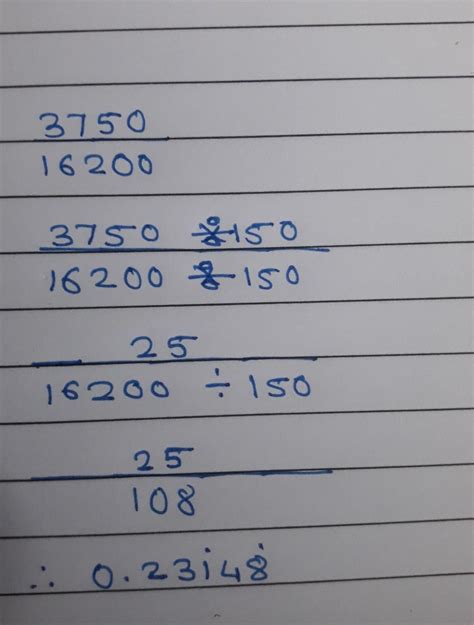 3750
16200
3750 ÷ 150
16200 ÷ 150
25
16200 ÷ 150
25
108
∴ 0.23i48̇